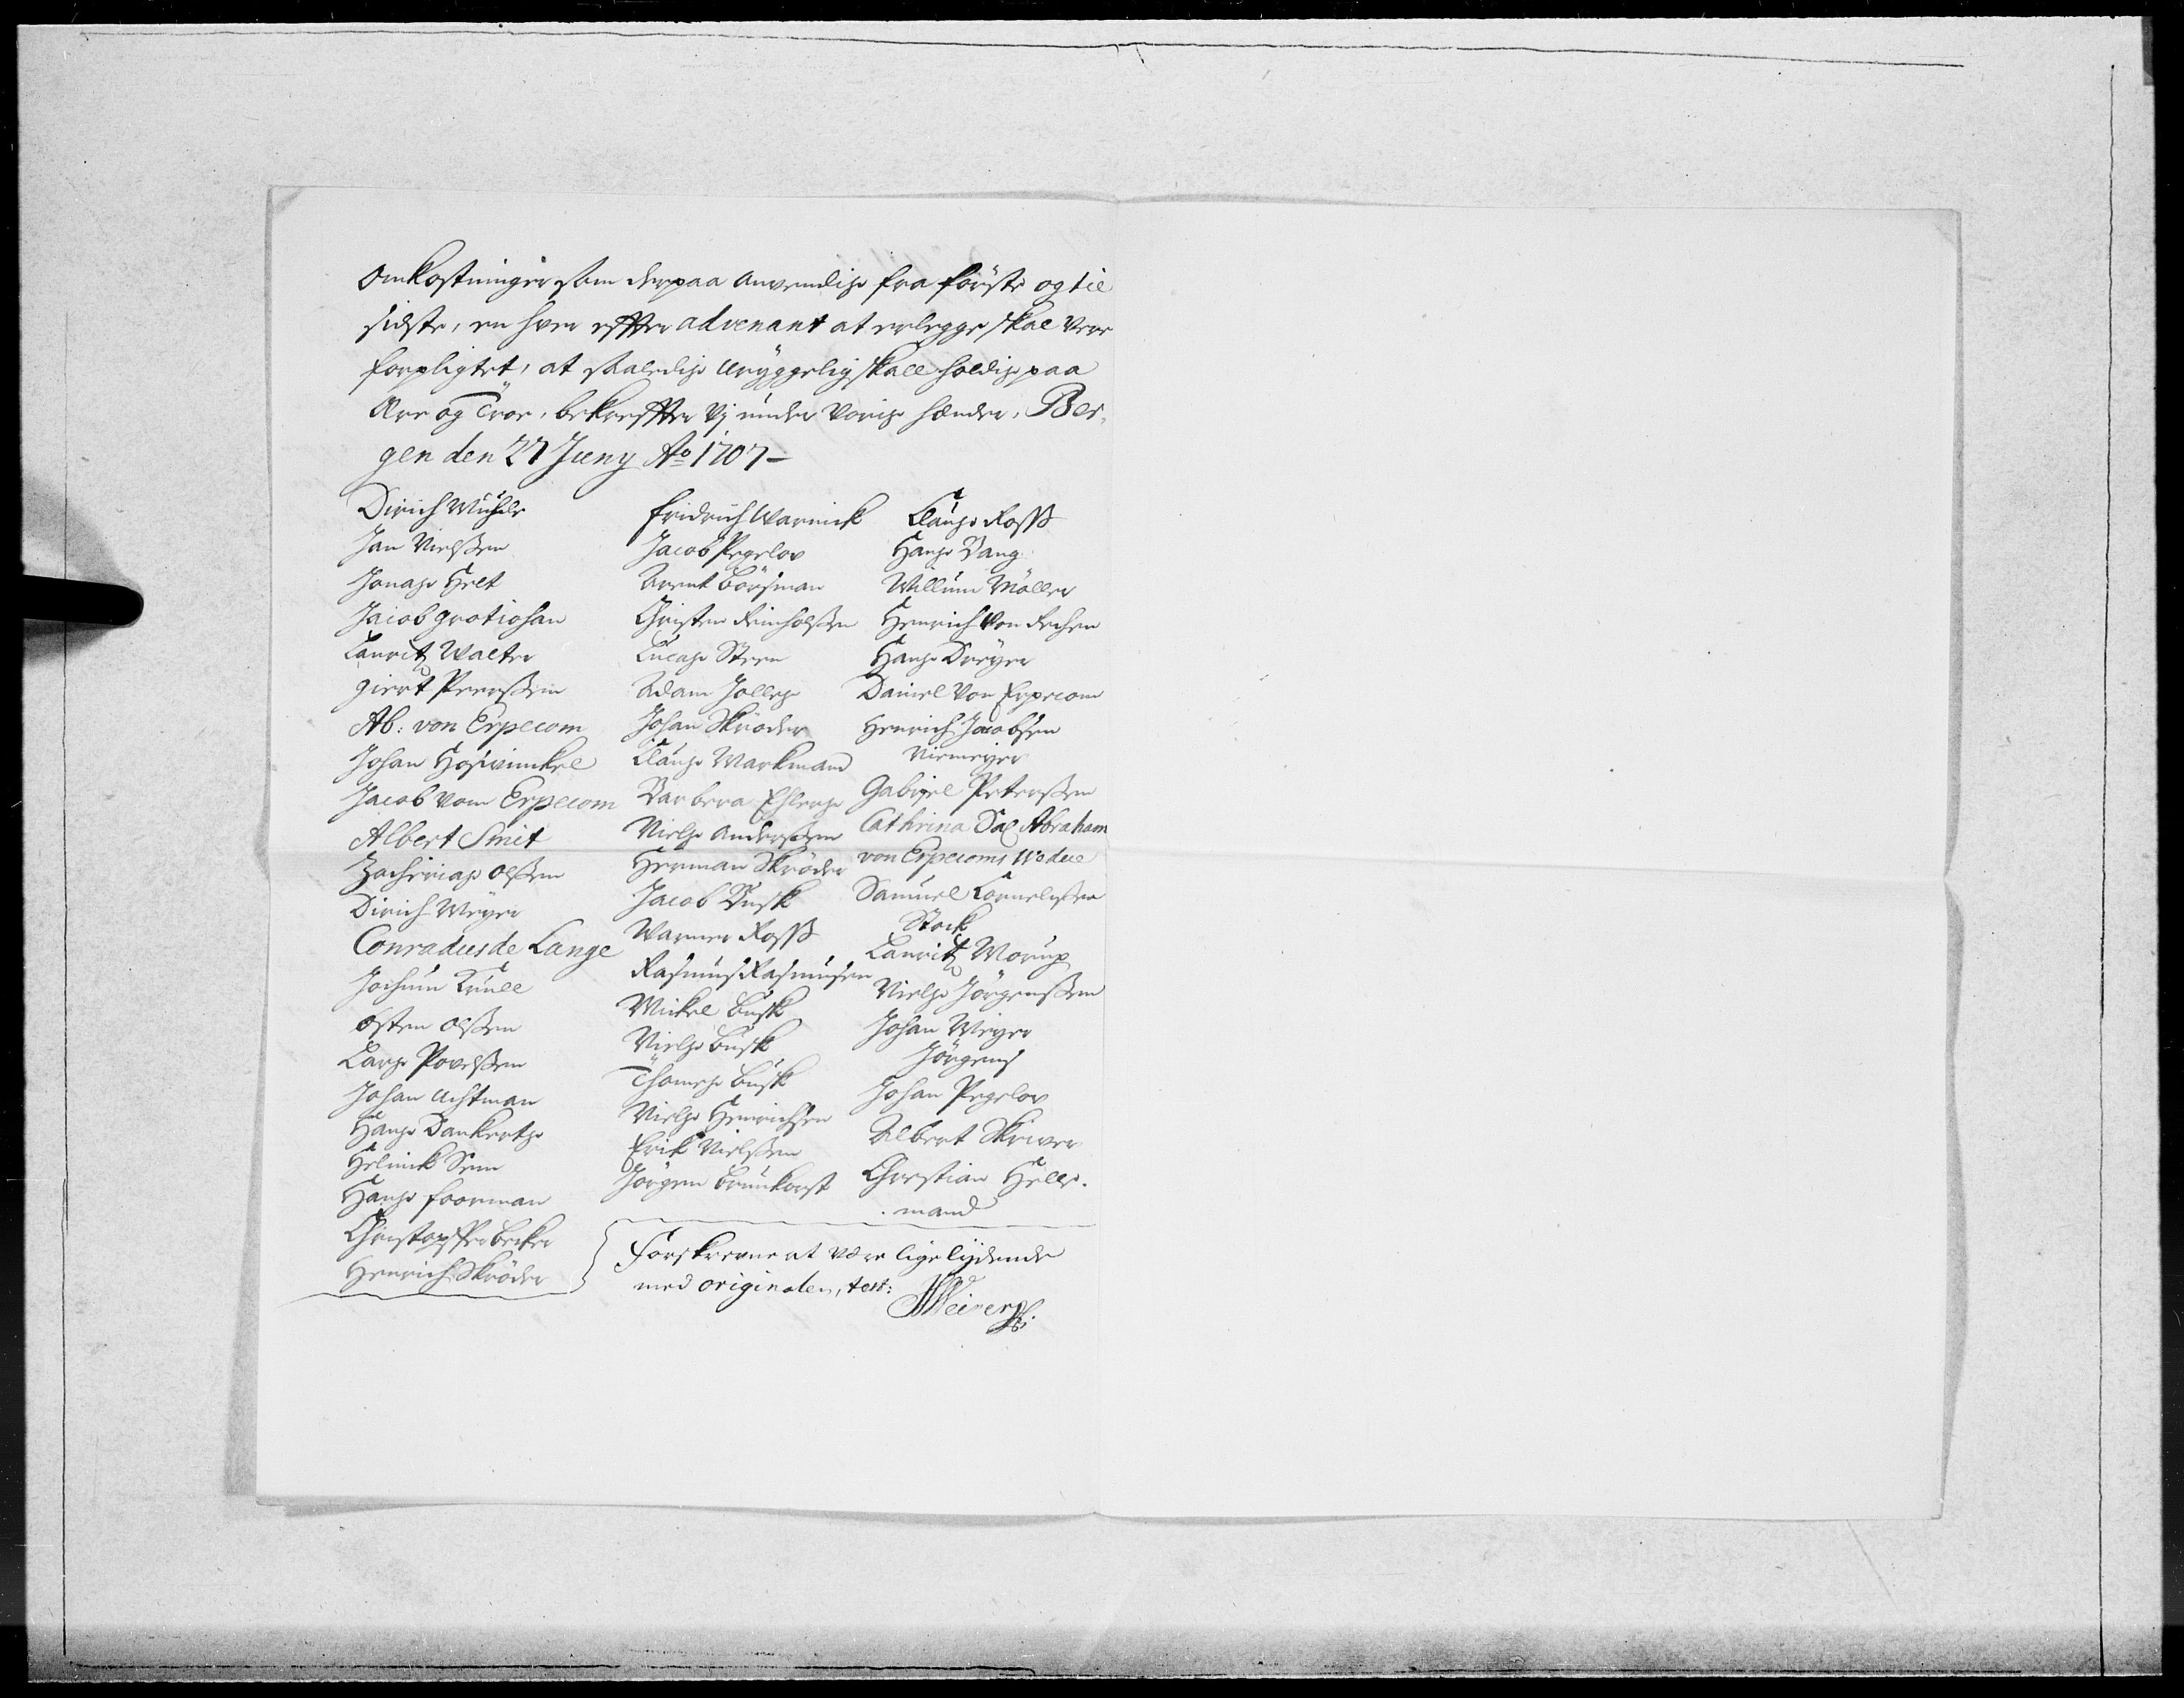 omkostninger som derpaa anvendis fra förste og til
sidste, en hver effter advenant at erlegge skal vere
forpligtet, at saaledis uryggelig skall holdis paa
Ære og Troe, bekreffter Vj under vores hænder, Ber-
gen den 27 Juny Ao 1707 -
Dirich Mühle
Jan Nielssen
Jonas Helt
Jacob Grotiohan
Lauritz Walter
Giert Peerssen
Ab: von Erpecom
Johan Hoswinkel
Jacob von Erpecom
Albert Smit
Zacherias Olssen
Dirich Meyer
Conradus de Lange
Jochum Krull
Østen Olssen
Lars Povelssen
Johan Achtman
Hans Dankerts
Helmick Sem
Hans Foorman
Christopffer Becker
Henrich Skröder
Fridrich Warnick
Jacob Pegelov
Berent Börsman
Christen Reinholssen
Lucas Steen
Adam Jolles
Johan Skröder
Claus Markmand
Barbera Ehlers
Niels Anderssen
Herman Skröder
Jacob Busk
Warner Ross
Rasmus Rasmussen
Mickel Busk
Niels Busk
Thomes Busk
Niels Henrichsen
Erik Nielssen
Jörgen Brunkorst
Claus Ross
Hans Bang
Willum Möller
Henrich von Rechen
Hans Dreyer
Daniel von Erpecom
Henrich Jacobsen
Niemeyer
Gabriel Peterssen
Cathrina Sal Abraham
von Erpecoms
Samuel Cornelissen
Stock
Lauritz Morup
Niels Jörgenssen
Johan Meyer
Jörgens
Johan Pegelov
Albert Skriver
Christian Helle-
-mand
Forskrevne at være lige lydende
med originalen, test: